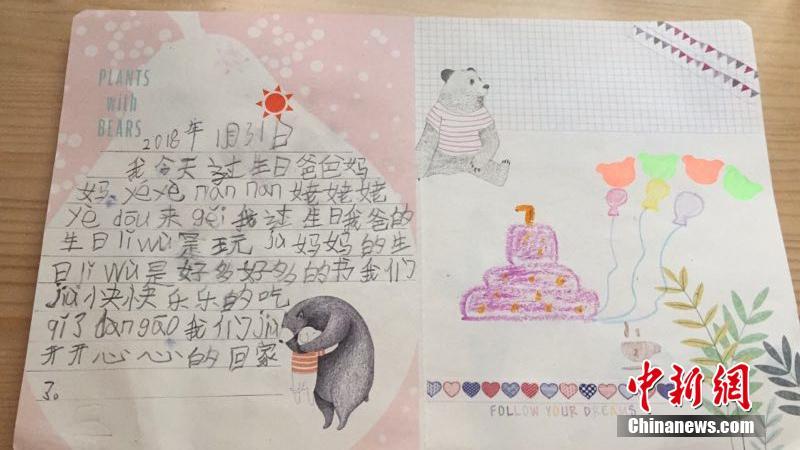 PLANTS
with
BEARS
2018年1月31日
我今天过生日爸爸妈
妈yéye nǎn nan姥姥姥
yé dōu来gěi我过生日我爸的
生日lǐ wù是玩jù妈妈的生
日lǐ wù是好多好多的书我们
jiù快快乐乐的吃
qǐ了dàn gāo我们jiù
开开心心的回家
了。
7
FOLLOW YOUR DREAMS
中新网
Chinanews.com